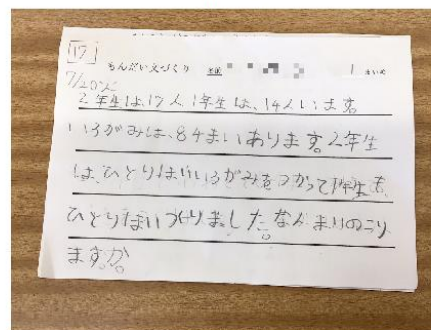 [17]
もんだい文づくり 名前 1 まいめ
7/20
2年生は17人1年生は、14人います。
いろがみは、84まいあります。2年生
は、ひとり まいいろがみをつかって1年生も、
ひとり まいつかりました。なんまいのこり
ますか。